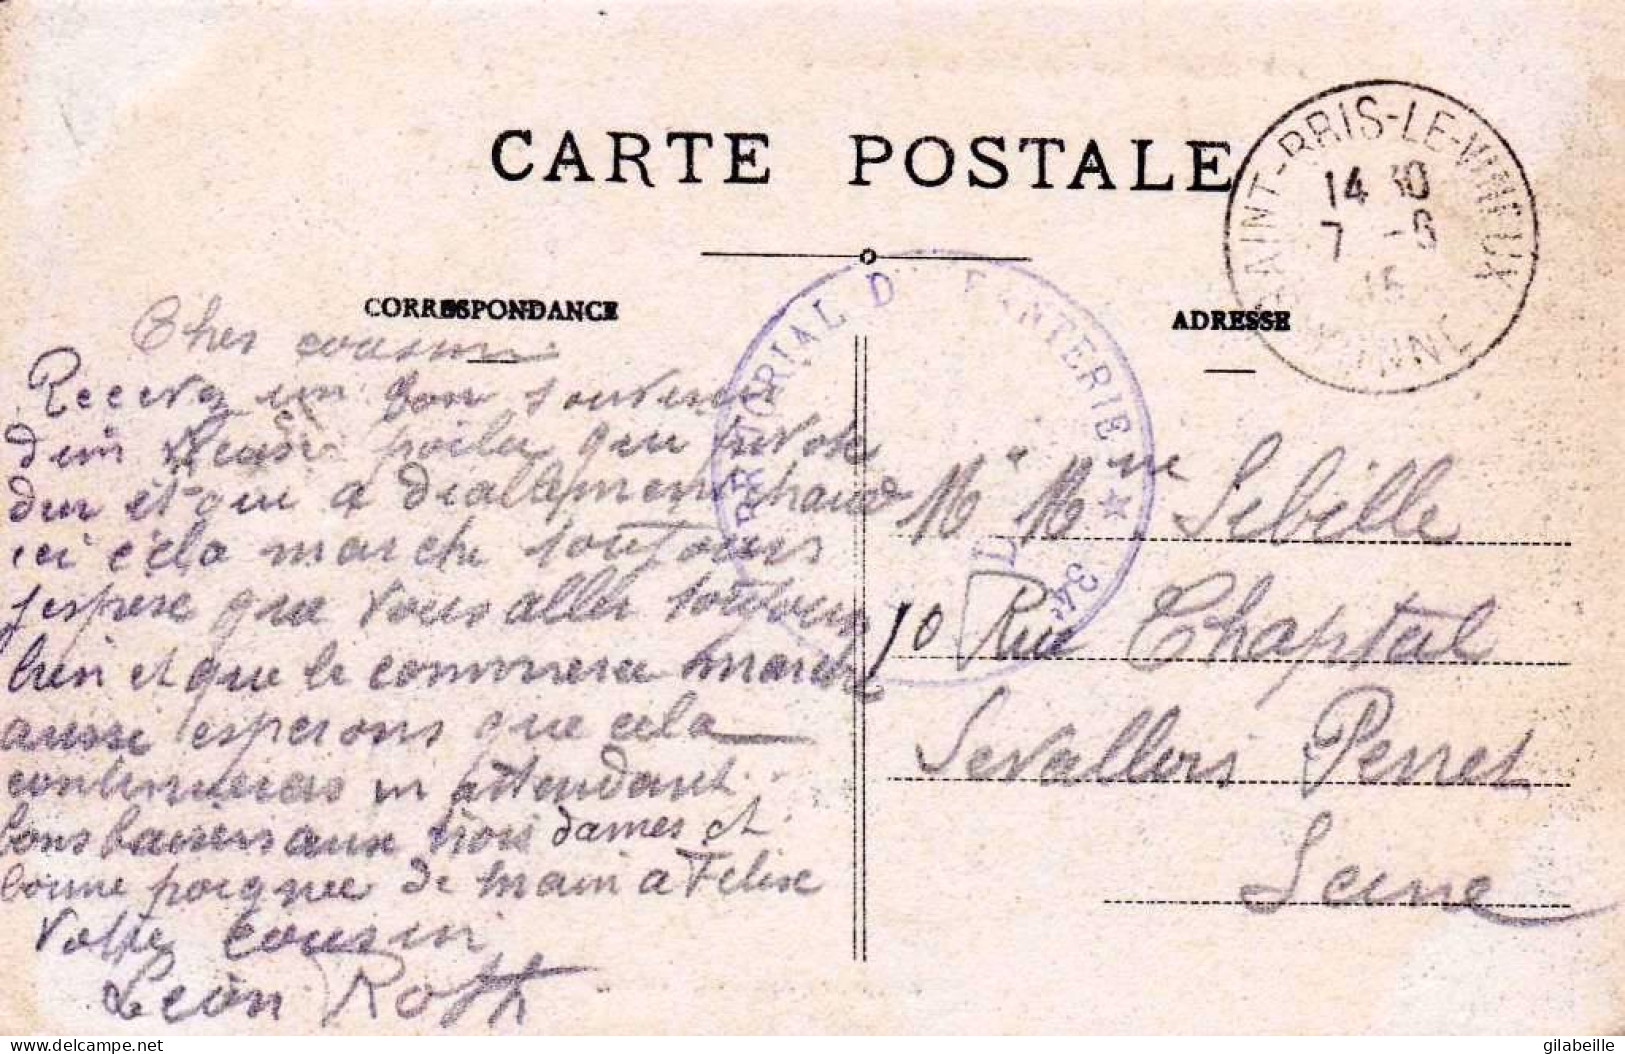 CARTE POSTALE
CORRESPONDANCE
ADRESSE
SAINT-BRIS-LE-VINEUX
14 30
7 -6
15
YONNE
TERRITORIAL D' INFANTERIE ★ 34e
Cher cousin
Recevez un bon souvenir
d'un poilu que
dur et qui a chaud
ici cela marche toujours
j'espere que vous aller toujours
bien et que le commerce marche
aussi esperons que cela
continueras en attendant
bons baisers aux trois dames et
bonne poignee de main a Felise
Votre cousin
Léon Roth
Mr Mme Sebille
10 Rue Chaptal
Levallois Perret
Seine
delcampe.net
gilabeille